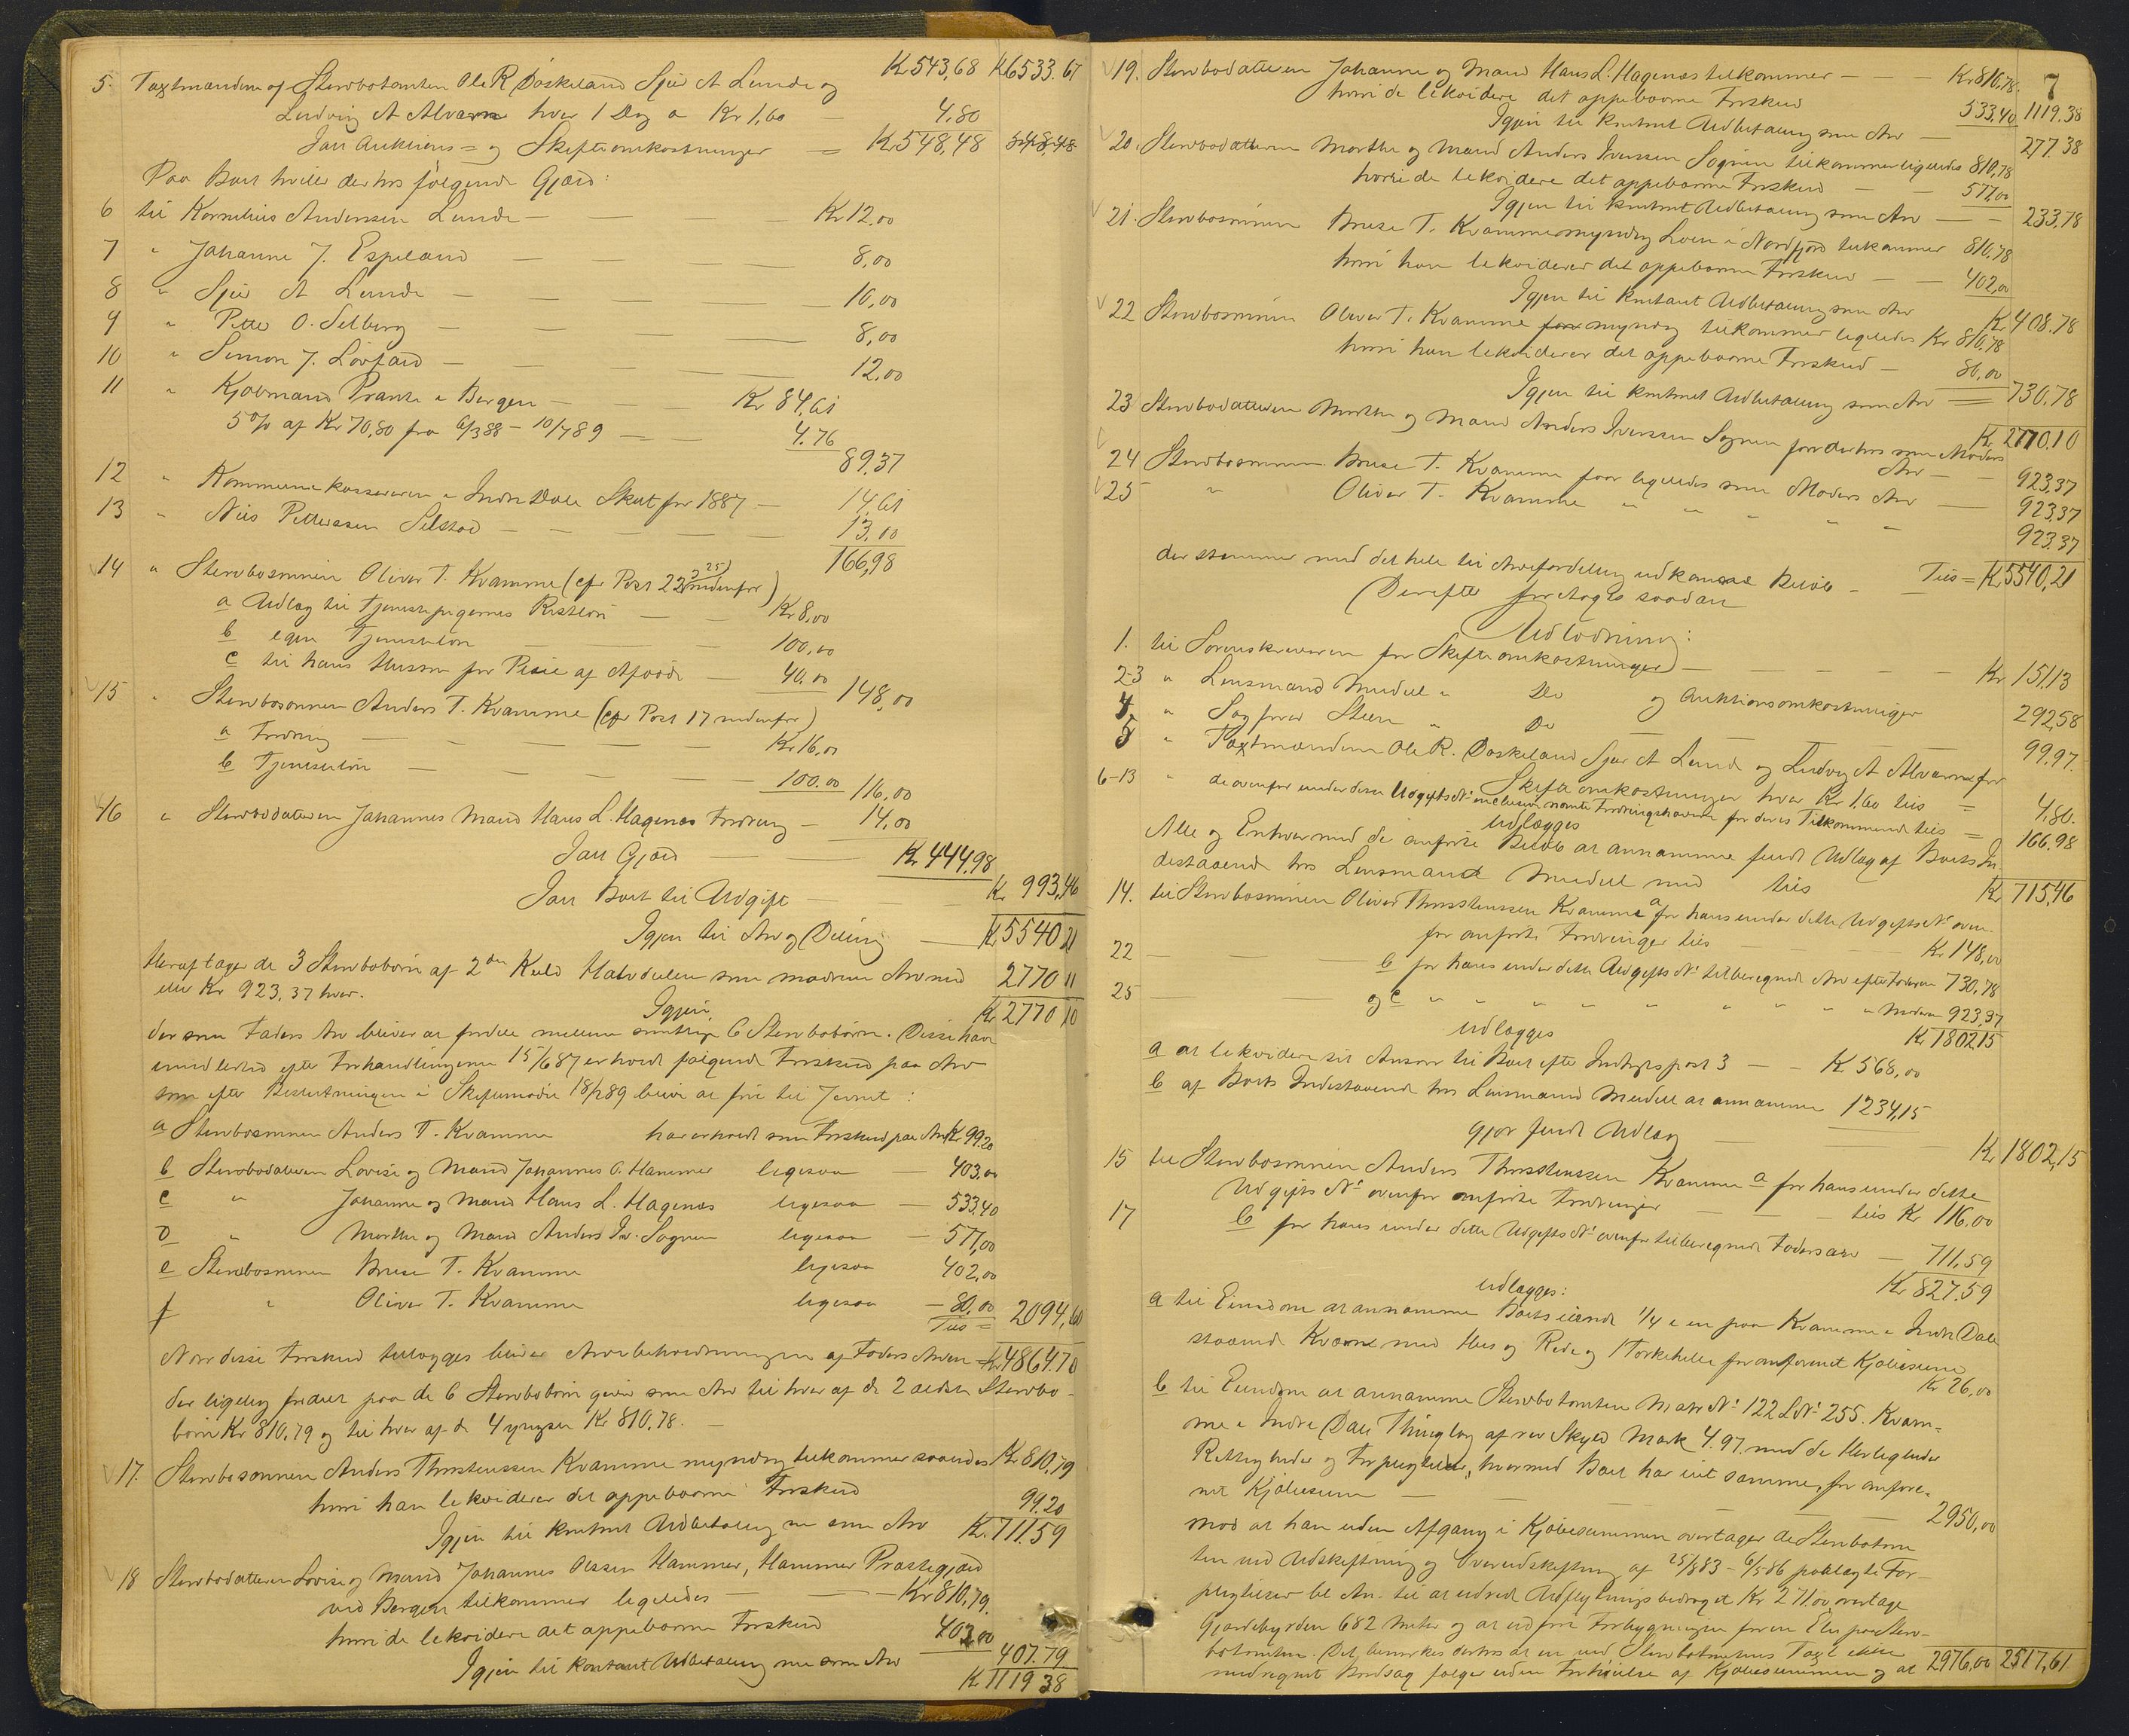 Kr 543,68 Kr 6533.67
5. Taxtmændene af Stervbotomten Ole R Døskeland Sjur A Lunde og
Ludvig A Alvarn hver 1 Dag a Kr 1,60 — 4,80
Jan Auktions= og Skifteomkostninger = Kr 548,48 548,48
Paa Boet hviler derhos følgende Gjæld:
6 til Kornelius Andersen Lunde — Kr 12,00
7 " Johanne J. Espeland — 8,00
8 " Sjur A Lunde — 10,00
9 " Petter O. Selberg — 8,00
10 " Simon J. — 12,00
11 " Kjøbmand Prante i Bergen — Kr 84,61
5 % af Kr 70,80 fra 6/3 88 – 10/7 89 — 4.76
89,37
12 " Kommunekassereren i Indre Dale Skat for 1887 — 14,61
13 " Nils Pettersen Selstad — 13,00
166,98
14 " Stervbosønnen Oliver T. Kvamme (cfr Post 22 25) nedenfor)
a Udlæg til Tjenestepigernes Restløn — Kr 8,00
b egen Tjenesteløn 100,00
c til hans Hustru for Pleie af Afdøde — 40.00 148,00
15 " Stervbosønnen Anders T. Kvamme (cfr Post 17 nedenfor)
a Fordring — Kr 16,00
b Tjenesteløn — 100.00 116,00
16 " Stervbodatteren Johannes Mand Hans L. Hagenæs Fordring — 14,00
Jan Gjæld — Kr 444,98
Jan Boet til Udgift — Kr 993,46
Igjen til Arv og Deling — Kr 5540 21
Heraf tager de 3 Stervbobørn af 2den Kuld Halvdelen som mødrene Arv med 2770 11
eller Kr 923,37 hver.
Igjen Kr 2770 10
der som Faders Arv bliver at fordele mellem samtlige 6 Stervbobørn. Disse har
imidlertid efter Forhandlingerne 15/6 87 erholdt følgende Forskud paa Arv
som efter Beslutningen i Skiftemøde 18/7 89 bliver at føre til Jevnet:
a Stervbosønnen Anders T. Kvamme har erholdt som Forskud paa Arv Kr 99.20
b Stervbodatteren Lovise og Mand Johannes O. Hammer ligesaa 403,00
c " Johanne og Mand Hans L. Hagenæs ligesaa — 533,40
d " Marthe og Mand Anders Iv. Sognen ligesaa — 577,00
e Stervbosønnen Bruse T. Kvamme ligesaa 402,00
f " Oliver T. Kvamme ligesaa — 80,00
Tils = 2094,60
Naar disse Forskud tillægges bliver Arvebeholdningen af Faders Arven = Kr 4864.70
der ligelig fordelt paa de 6 Stervbobørn giver som Arv til hver af de 2 ældste Stervbo-
børn Kr 810,79 og til hver af de 4 yngste Kr 810,78. —
17. Stervbosønnen Anders Thorstenssen Kvamme myndig tilkommer saaledes Kr 810,79
hvori han lekviderer det oppebaarne Forskud 99.20
Igjen til kontant Udbetaling nu som Arv Kr. 711.59
18 Stervbodatteren Lovise og Mand Johannes Olssen Hammer, Hammer Prestegjæld
ved Bergen tilkommer ligeledes — Kr 810,79.
hvori de lekvidere det oppebaarne Forskud 403,00
Igjen til kontant Udbetaling nu som Arv 407.79
Kr. 1119 38
7
19. Stervbodatteren Johanne og Mand Hans L. Hagenæs tilkommer — Kr 810,78.
hvori de lekvidere det oppebaarne Forskud 533,40 1119.38
Igjen til kontant Udbetaling som Arv — 277.38
20. Stervbodatteren Marthe og Mand Anders Iverssen Sognen tilkommer ligeledes 810,78
hvori de lekvidere det oppebaarne Forskud — 577,00
Igjen til kontant Udbetaling som Arv — 233,78
21. Stervbosønnen Bruse T. Kvamme myndig Loen i Nordfjord tilkommer 810,78
hvori han lekviderer det oppebaarne Forskud — 402,00
Igjen til kontant Udbetaling som Arv Kr. 408.78
22 Stervbosønnen Oliver T. Kvamme myndig tilkommer ligeledes Kr 810,78
hvori han lekviderer det oppebaarne Forskud — 80,00
Igjen til kontant Udbetaling som Arv — 730,78
Kr. 2770.10
23 Stervbodatteren Marthe og Mand Anders Iverssen Sognen faar derhos som Moders
Arv — 923,37
24 Stervbosønnen Bruse T. Kvamme faar ligeledes som Moders Arv — 923,37
25 " Oliver T. Kvamme " " " " " 923,37
der stemmer med det hele til Arvefordeling udkomne Beløb — Tils = Kr 5540,21
Derefter foretoges saadan
Udlodning:
1. til Sorenskriveren for Skifteomkostninger — Kr 151,13
2-3 " Lensmand Meidell " Do og Auktionsomkostninger 292,58
4 " Sagfører Steen " Do — 99,97.
5 " Taxtmændene Ole R. Døskeland Sjur A Lunde og Ludvig A Alvarn for
Skifteomkostninger hver Kr 1.60 tils = 4,80.
6-13 " de ovenfor under disse Udgifts No nævnte Fordringshavere for deres Tilkommende tils = 166,98
udlægges
Alle og Enhver med de anførte Beløb at annamme fuldt Udlæg af Boets In-
destaaende hos Lensmand Meidell med tils Kr 715,46
14. til Stervbosønnen Oliver Thorstenssen Kvamme a for hans under dette Udgifts No oven-
for anførte Fordringer tils — Kr 148,00
22 — b for hans under dette Udgifts No tilberegnede Arv efter Faderen 730,78
25 — og c " " " " " " " " Moderen 923,37
udlægges Kr 1802,15
a at lekvidere sit Ansvar til Boet efter Indtægtspost 3 — Kr 568,00
b af Boets Indestaaende hos Lensmand Meidell at annamme 1234,15
gjør fuldt Udlæg — Kr 1802,15
15 til Stervbosønnen Anders Thorstenssen Kvamme a for hans under dette
Udgifts No ovenfor anførte Fordringer — tils Kr 116,00
17 b for hans under dette Udgifts No ovenfor tilberegnede Fadersarv — 711,59
udlægges: Kr 827,59
a til Eiendom at annamme Boets eiende 1/4 i en paa Kvamme i Indre Dale
staaende Kværn med Hus og Rede og Tørkehelle for anførende Kjøbesum
Kr 26,00
b til Eiendom at annamme Stervbotomten Matr No 122 L No 255. Kvam-
me i Indre Dale Thinglag af rev Skyld Mark 4.97 med de Herligheder
Rettigheder og Forpligtelser, hvormed Boet har eiet samme, for anfore-
net Kjøbesum — 2950,00
mod at han uden Afgang i Kjøbesummen overtager de Stervbotom-
ten ved Udskiftning og Overudskiftning af 25/8 83 – 6/5 86 paalagte For-
pligtelser bl An. til at udrede Udflytningsbidraget Kr 271.00, overtage
Gjerdebyrden 682 Meter og at udføre Forbygningen for en Elv paa Sterv-
botomten. Det bemærkes derhos at en ved Stervbotomtens Taxt ikke
medregnet Bordsag følger uden Forhøielse af Kjøbesummen og at 2976,00 2517,61